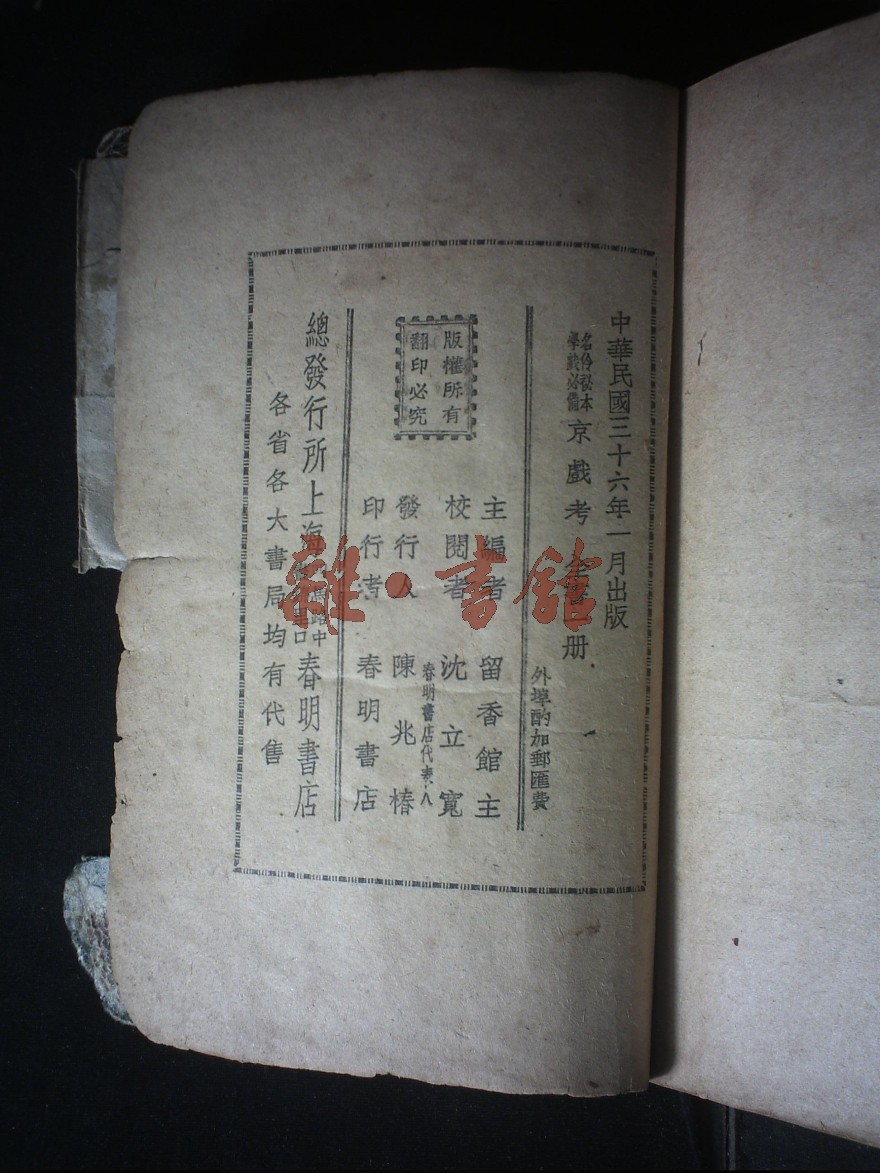 中華民國三十六年一月出版
名伶秘本
學戲必備
京戲考 全書一册
外埠酌加郵匯費
版權所有
翻印必究
主編者 留香館主
校閱者 沈立寬
發行人 春明書店代表人 陳兆椿
印行者 春明書店
總發行所 上海 馬路中 口 春明書店
各省各大書局均有代售
雜·書館